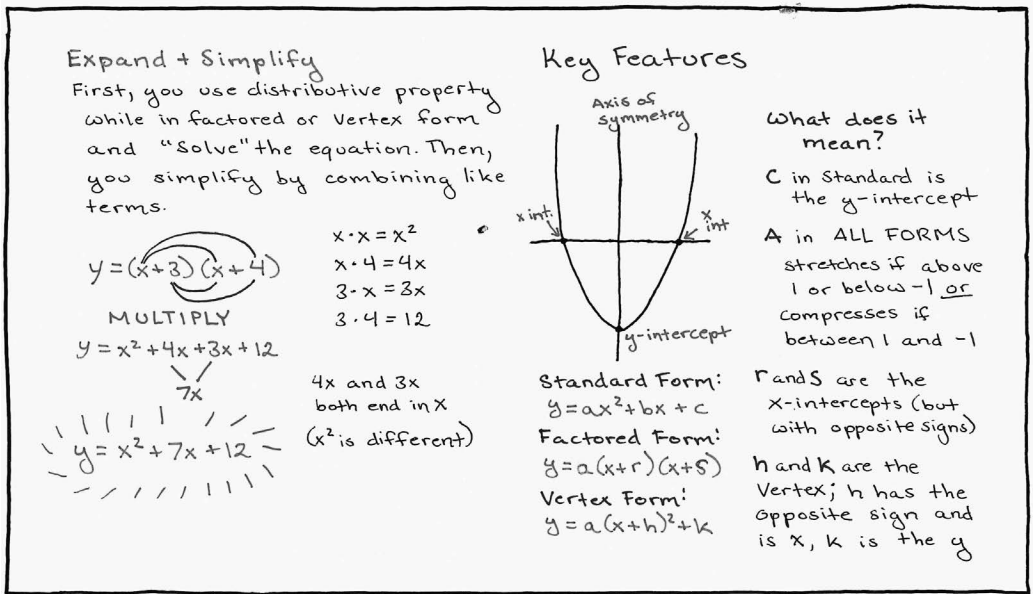 Expand + Simplify
First, you use distributive property
while in factored or vertex form
and "solve" the equation. Then,
you simplify by combining like
terms.
y = (x+3)(x+4)
MULTIPLY
y = x² + 4x + 3x + 12
7x
y = x² + 7x + 12
x · x = x²
x · 4 = 4x
3 · x = 3x
3 · 4 = 12
4x and 3x
both end in x
(x² is different)
Key Features
Axis of
symmetry
x int.
x
int
y-intercept
Standard Form:
y = ax² + bx + c
Factored Form:
y = a(x+r)(x+s)
Vertex Form:
y = a(x+h)² + k
What does it
mean?
C in Standard is
the y-intercept
A in ALL FORMS
stretches if above
1 or below -1 or
compresses if
between 1 and -1
r and s are the
x-intercepts (but
with opposite signs)
h and k are the
Vertex; h has the
opposite sign and
is x, k is the y